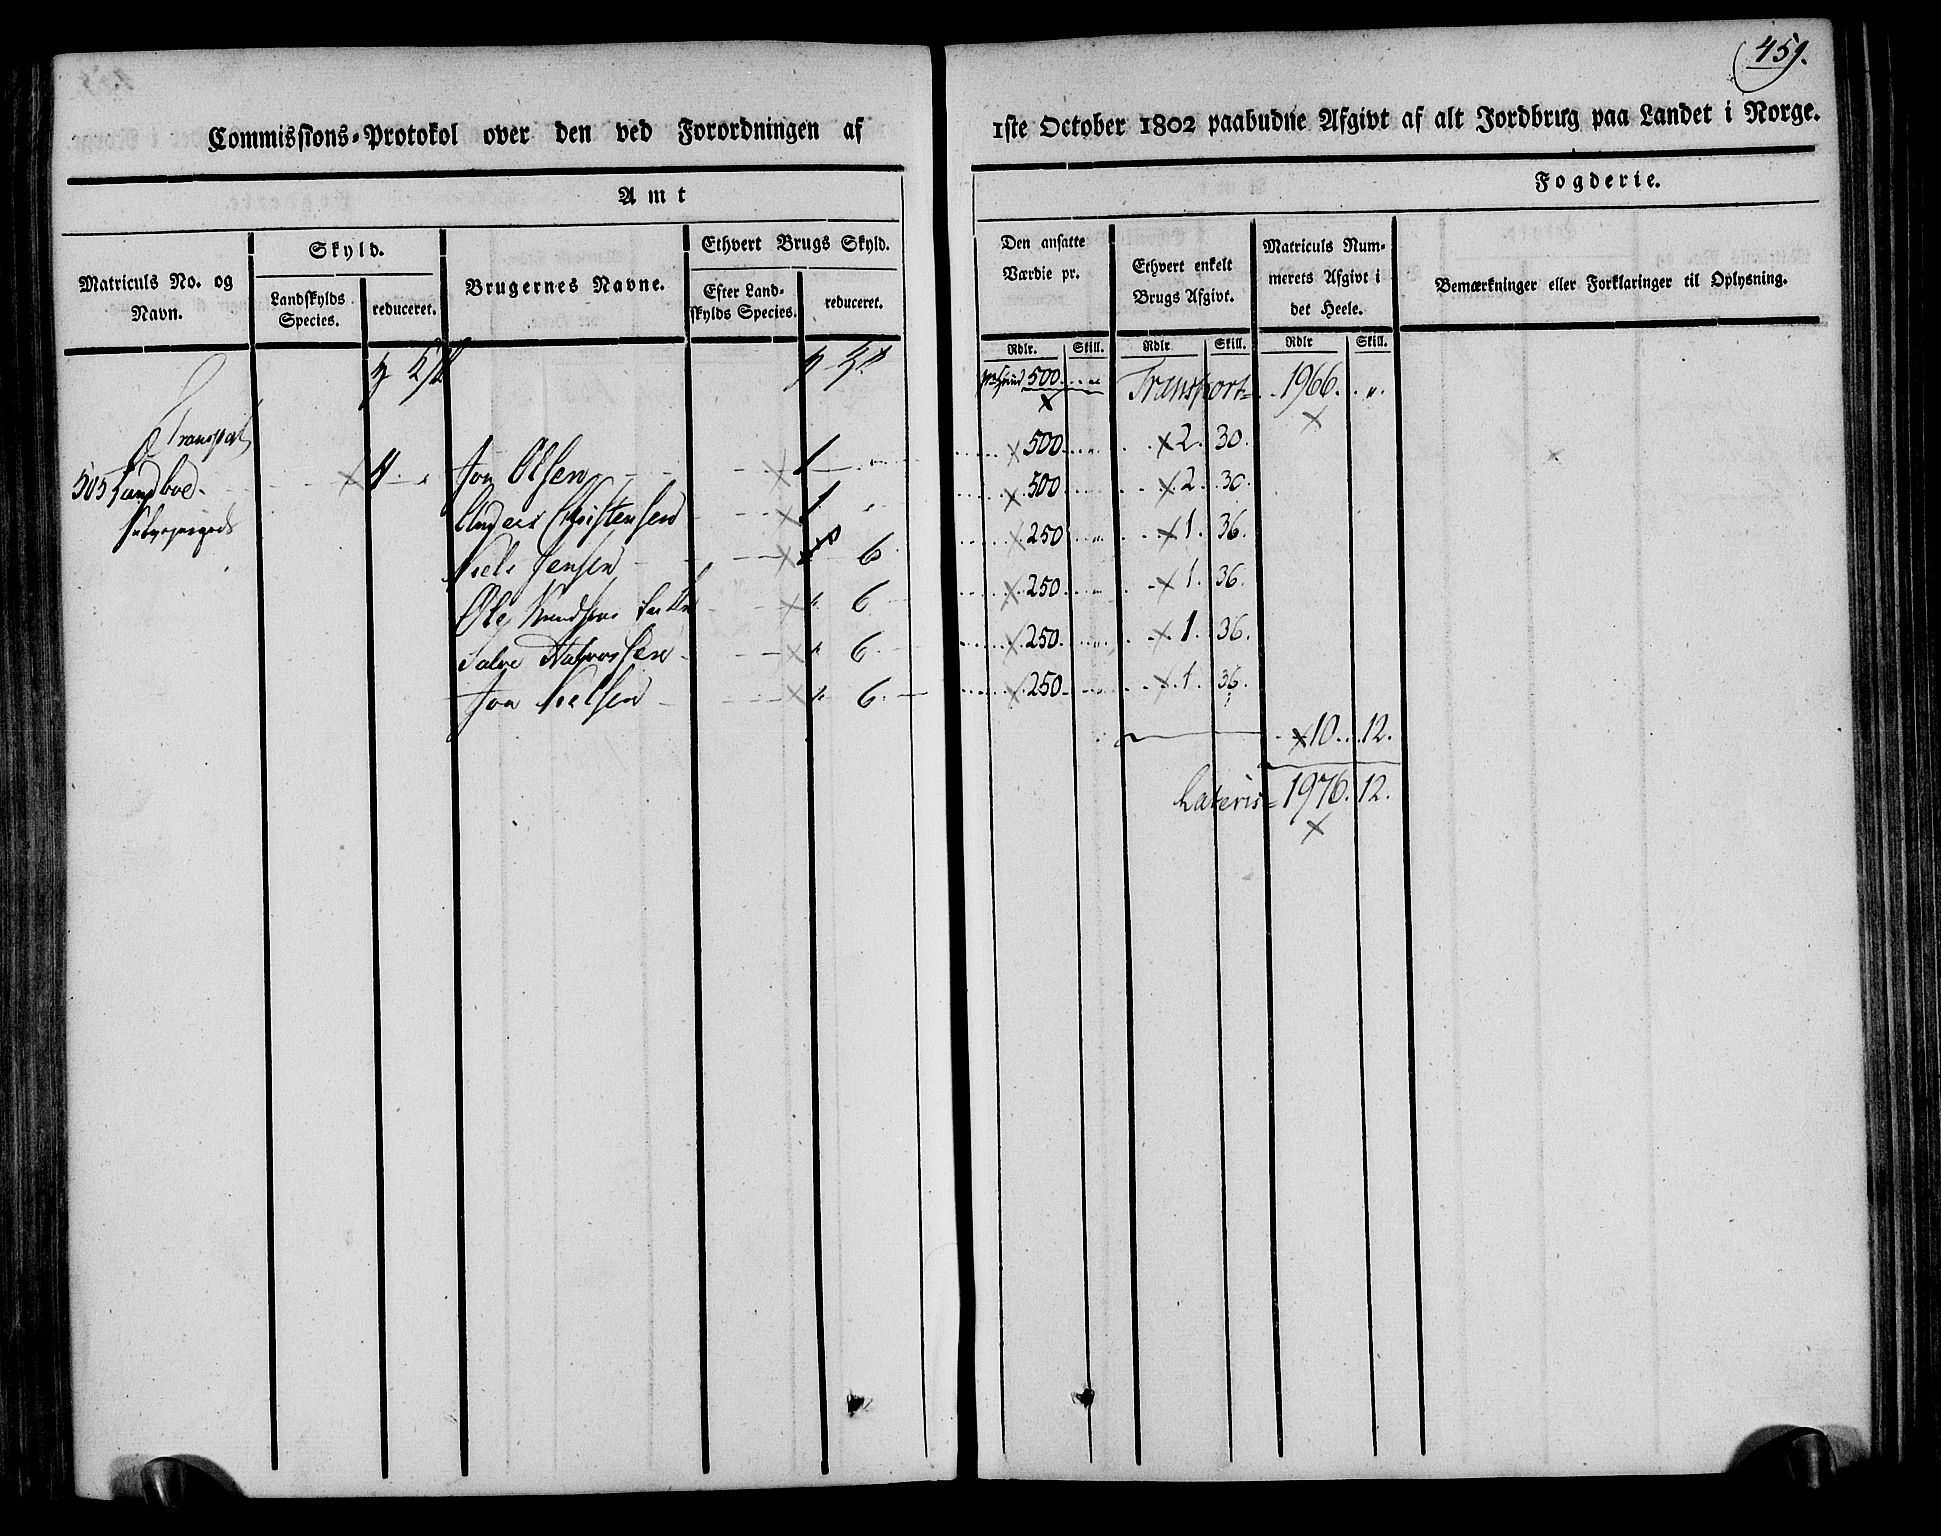 459.
Commissions-Protokol over den ved Forordningen af 1ste October 1802 paabudne Afgivt af alt Jordbrug paa Landet i Norge.
Amt
Fogderie.
Matriculs No. og Navn.
Skyld.
Landskylds Species.
reduceret.
Brugernes Navne.
Ethvert Brugs Skyld.
Efter Landskylds Species.
reduceret.
Den ansatte Værdie pr.
Ethvert enkelt Brugs Afgivt.
Matriculs Nummerets Afgivt i det Heele.
Bemærkninger eller Forklaringer til Oplysning.
Rdlr. Skill. Rdlr Skill. Rdlr Skill.
Transport
500 Transport 1966. "
505 Sandboe 4 Jon Olsen 1 500 2. 30.
Anders Christensen 1 500 2. 30.
Niels Jensen " 6 250 1. 36.
Ole Knudsens " 6 250 1. 36.
Salve " 6 250 1. 36.
Jon Nielsen " 6 250 1. 36.
10. 12.
Lateris 1976. 12.